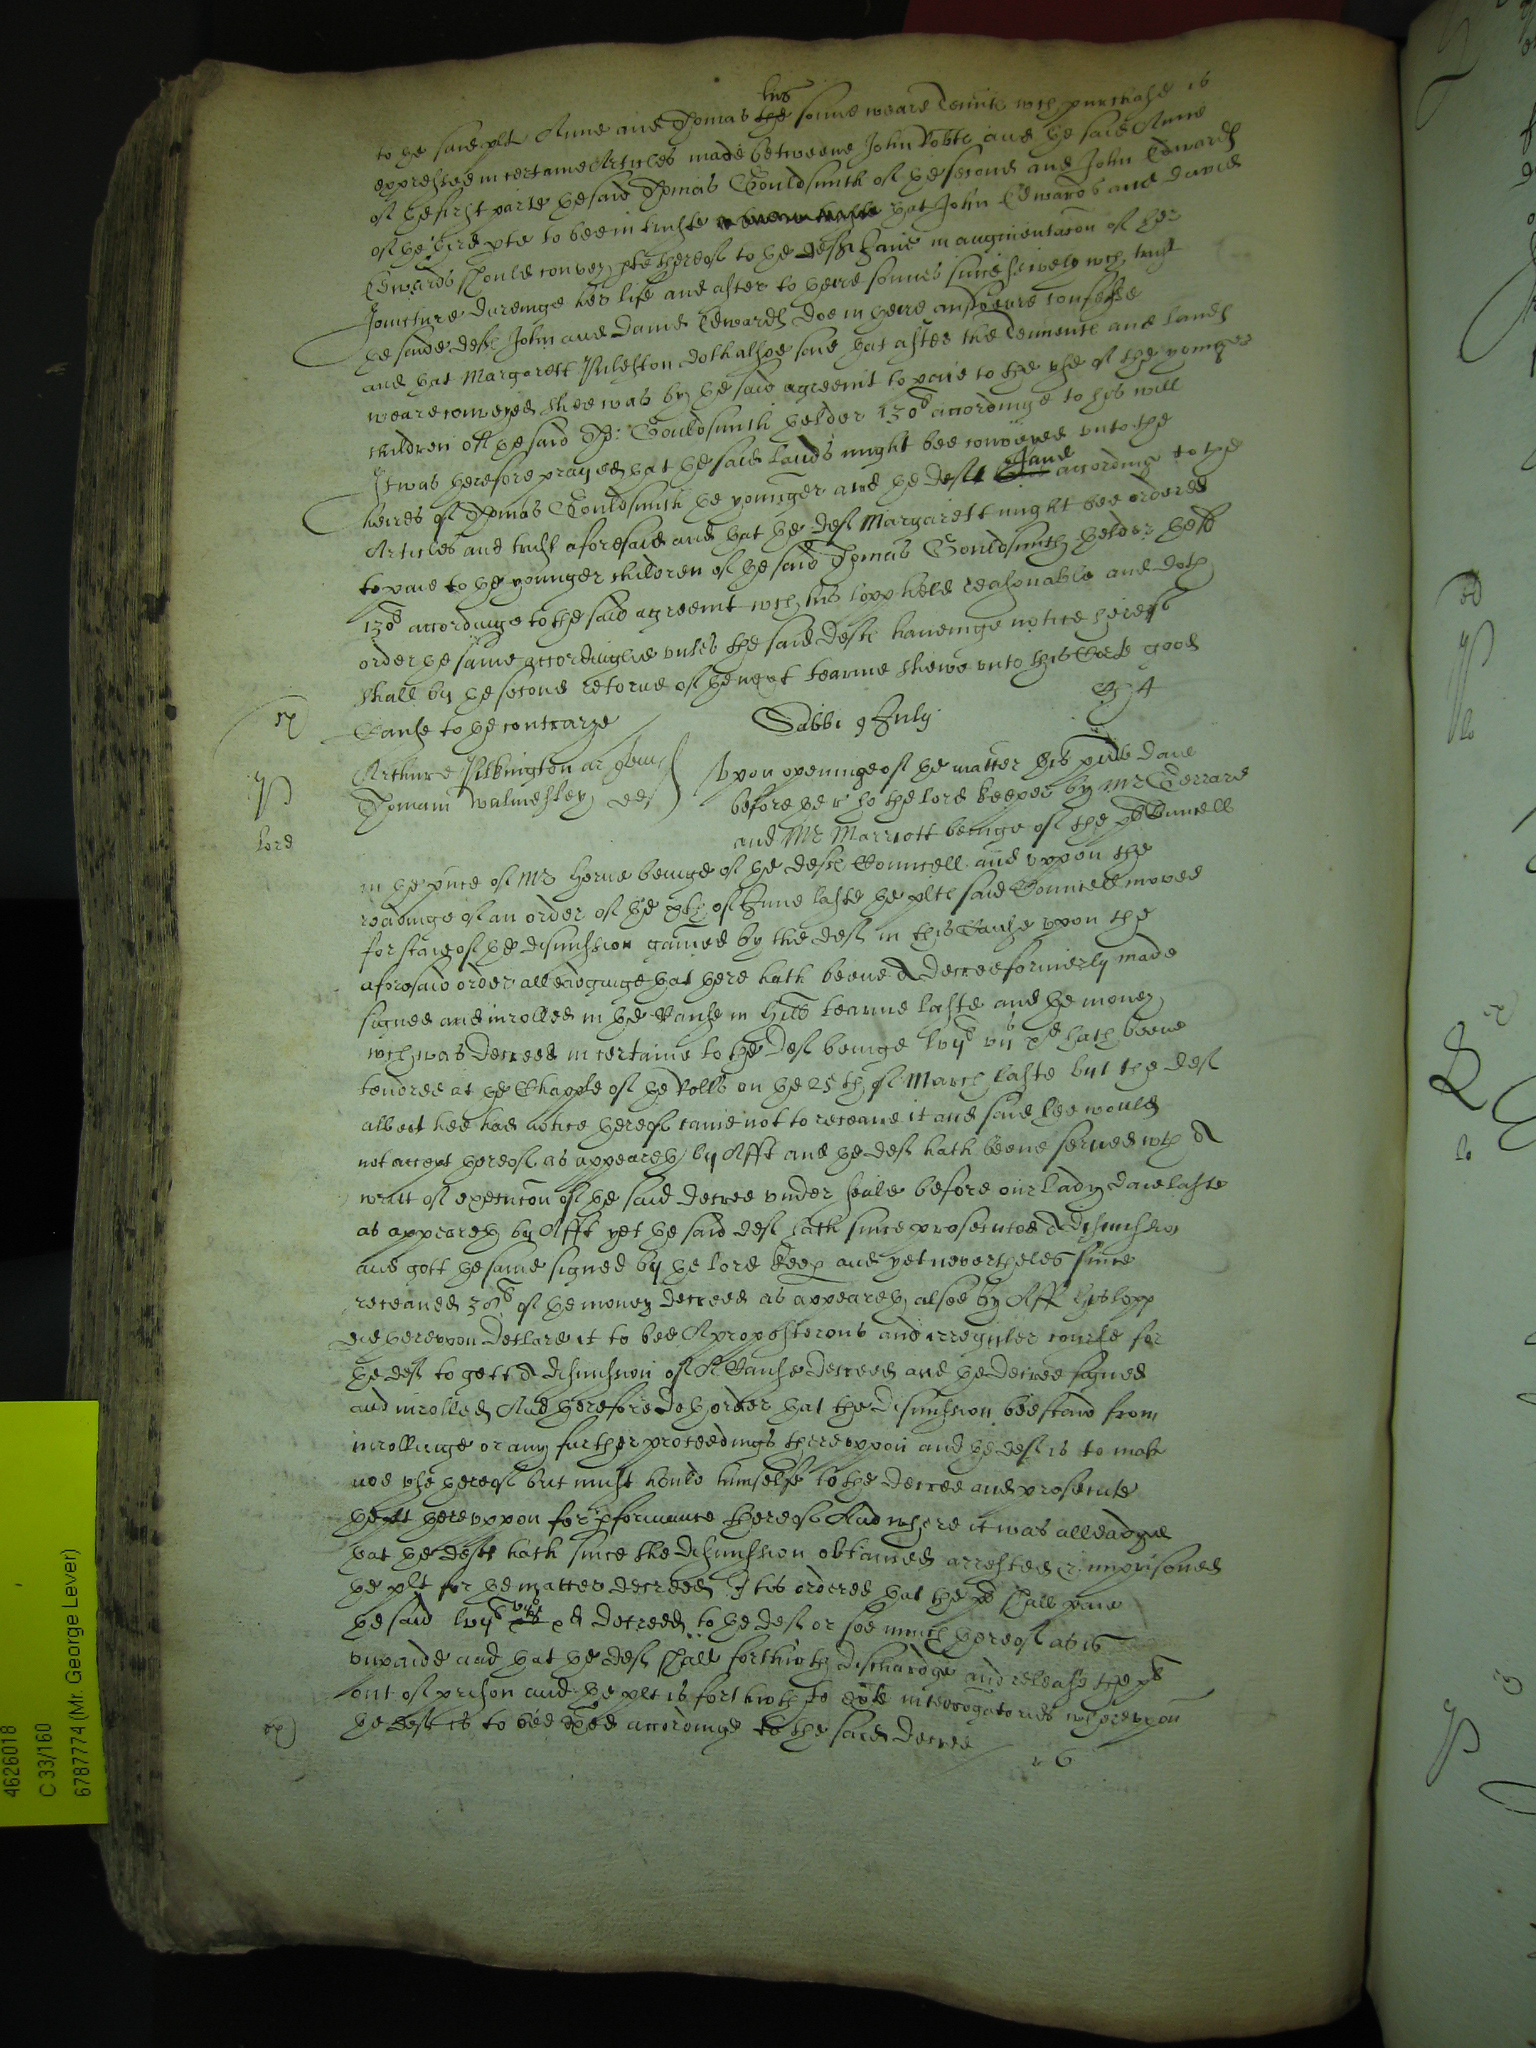 his
to ye said plt Anne and Thomas the sonne weare Tennts wch purchase is
expressed in certaine Articles made betweene John Robts and ye said Anne
of ye first parte ye said Thomas Gouldsmith of ye second and John Edwards
of ye third pte to bee in truste yat John Edwards and David
Edwards should convey pte thereof to ye deft Jane in augmentacon of her
Joincture dureinge her life and after to heire sonnes successively wch trust
ye saide defts John and David Edwards doe in theire answeare confesse
and yat Margarett Puleston doth alsoe saie yat after the Tennents and lands
weare conveyed shee was by ye said agreemt to paie to the use of the younger
children off ye said Tho: Gouldsmith thelder 130li accordinge to his will
It was therefore prayed yat ye said lands might bee conveied unto the
heires of Thomas Gouldsmith ye younger and ye deft Jane according to the
Articles and trust aforesaid and yat ye deft Margarett might bee ordered
to paie to ye younger children of ye said Thomas Gouldsmith thelder the sd
130li accordinge to the said agreemt wch his lopp held reasonable and doth
order ye same accordinglie unles the said defts haveinge notice hereof
shall by ye second retorne of ye next tearme shewe unto this Corte good
Cause to ye contrarye
Sabbi 9 July
Arthure Pilkington ar quer
Thomam Walmesley def
lord
Upon openinge of ye matter this pnte daie
before ye r ho the lord keeper by Mr Gerrard
and Mr Marriott beinge of the plts Councell
in ye pnce of Mr Herne beinge of ye defts Councell and uppon the
readinge of an order of ye of June laste ye plts said Councell moved
for staie of ye dismission gained by the deft in this Cause upon the
aforesaid order alleadginge yat there hath beene A decree formerly made
signed and inrolled in ye Cause in Hill tearme laste and ye money
wch was decreed in certaine to the deft beinge lvijli vijs xd hath beene
tendred at ye Chapple of ye Rolls on ye 25th of March laste but the deft
albeit hee had notice thereof came not to receave it and said hee would
not accept thereof as appeareth by Afft and ye deft hath beene served wth A
writt of execucon of ye said decree under seale before our Lady daie laste
as appeareth by Afft yet ye said deft hath since prosecuted A dismission
and gott ye same signed by ye lord keep and yet nevertheles since
receaved 30li of ye money decreed as appeareth alsoe by Afft his lopp
did thereuppon declare it to bee A preposterous and irreguler course for
ye deft to gett A dismission of A Cause decreed and ye decree signed
and inrolled And therefore doth order that the dismission bee staid from
inrollinge or any further proceedings thereuppon and ye deft is to make
noe use thereof but must hould himselfe to the decree and prosecute
ye plt thereuppon for pformance thereof And where it was alleadged
yat ye deft hath since the dismission obtained arrested & imprisoned
ye plt for ye matter decreed It is ordered yat the plt shall paie
ye said lvijli vijs xd decreed to ye deft or soe much thereof as is
unpaide and yat ye deft shall forthwith discharge and release the plt
out of prison and ye plt is forthwith to exhte interrogatories whereupon
ye deft is to bee exed accordinge to the said decree
4626018
C 33/160
6787774 (Mr. George Lever)